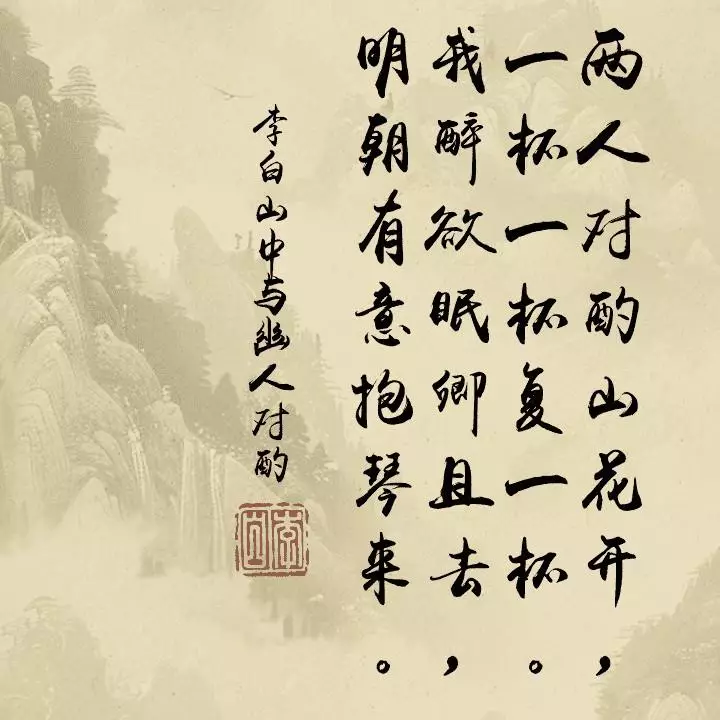 两人对酌山花开，
一杯一杯复一杯。
我醉欲眠卿且去，
明朝有意抱琴来。
李白山中与幽人对酌